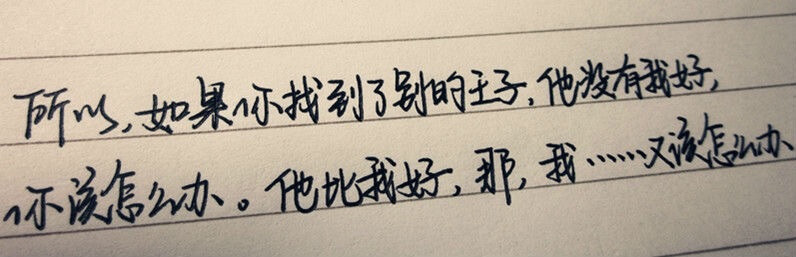 所以,如果你找到了别的王子,他没有我好,
你该怎么办。他比我好,那,我……又该怎么办